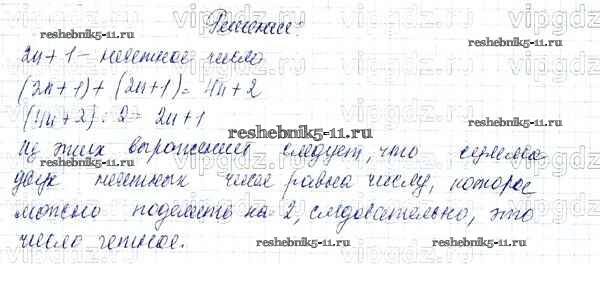 Решение:
2n+1 – нечетное число
(2n+1)+(2n+1)=4n+2
(4n+2):2=2n+1
Из этих выражений следует, что сумма
двух нечетных чисел равна числу, которое
можно поделить на 2, следовательно, это
число четное.
reshebnik5-11.ru
reshebnik5-11.ru
reshebnik5-11.ru
reshebnik5-11.ru
reshebnik5-11.ru
vipgdz.ru
vipgdz.ru
vipgdz.ru